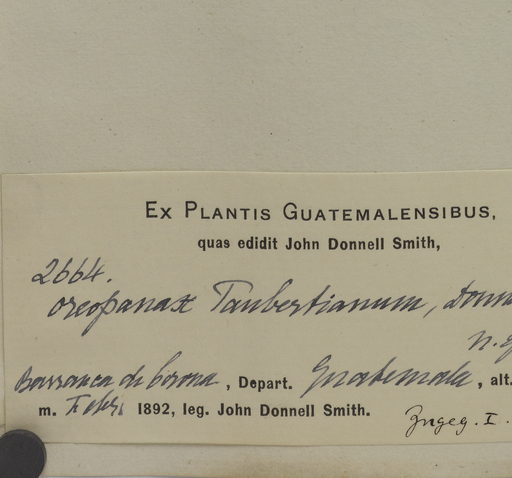 Ex Plantis Guatemalensibus,
quas edidit John Donnell Smith,
2664.
Oreopanax Taubertianum, Donn
n. sp
Barranca de Corona, Depart. Guatemala, alt.
m. Febr. 1892, leg. John Donnell Smith.
Zngeg. I.